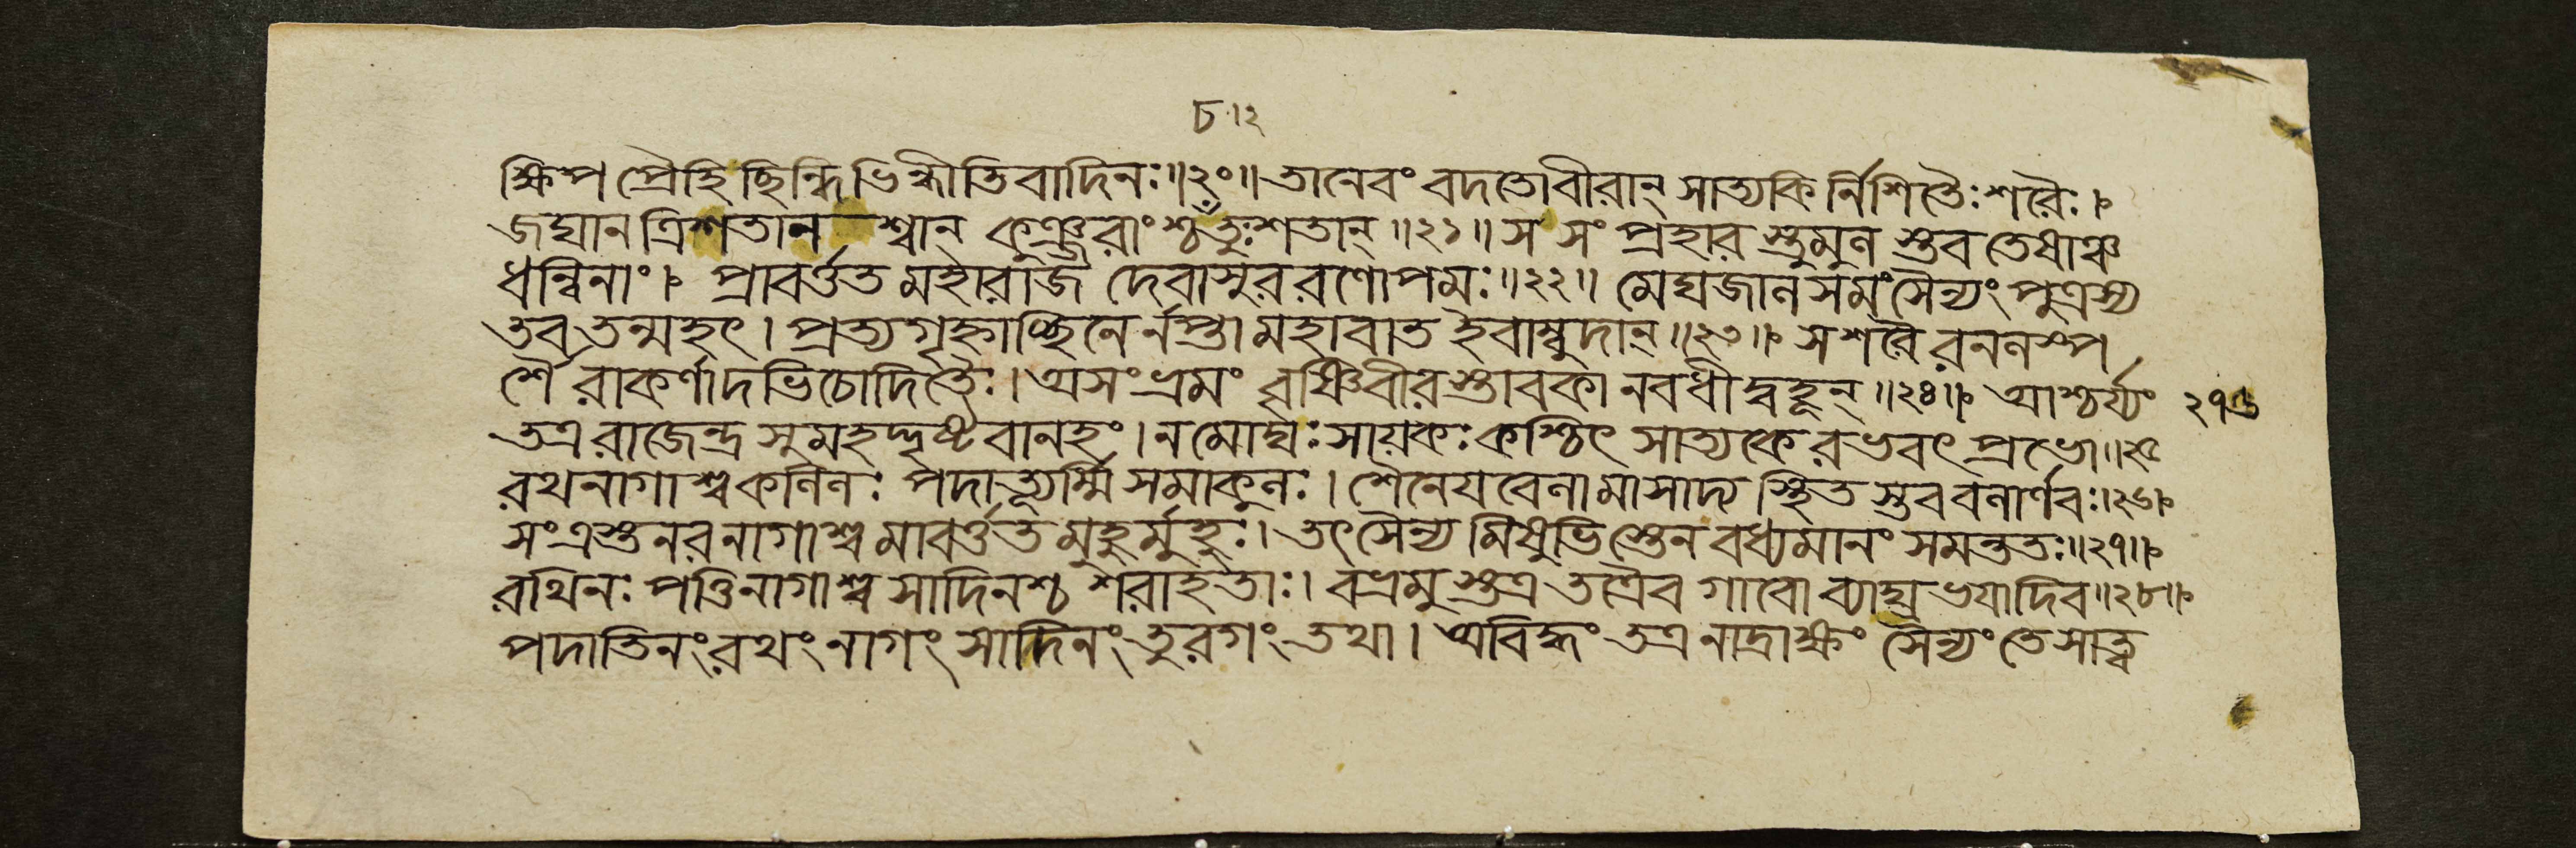 ৮।২
ক্ষিপ প্রৈহি ছিন্দি ভিন্ধীতিবাদিনঃ॥২০॥ তানেবং বদতোবীরান্ সাত্যকির্নিশিতৈঃ শরৈঃ।
জঘান ত্রিশতান শ্বান্ কুঞ্জরাংশ্চঁতুঃশতান্॥২১॥ স সং প্রহার স্তুমুল স্তব তেষাঞ্চ
ধন্বিনাং। প্রাবর্ত্তত মহারাজ দেবাসুররণোপমঃ॥২২॥ মেঘজালসমংসৈন্যং পুত্রস্য
তব তন্মহৎ। প্রত্যগৃহ্লাচ্ছিনের্নপ্তা মহাবাত ইবাম্বুদান্॥২৩॥ স শরৈরনলস্প
র্শৈরাকর্ণাদভিচোদিতৈঃ। অসংভ্রমং বৃষ্ণিবীরস্তাবকানবধীদ্বহূন্॥২৪॥ আশ্চর্য্যং ২৭৬
তত্র রাজেন্দ্র সুমহদ্দৃষ্টবানহং। ন মোঘঃ সায়কঃ কশ্চিৎ সাত্যকেরভবৎ প্রভো॥২৫
রথনাগাশ্বকলিলঃ পদাত্যূর্ম্মিসমাকুলঃ। শৈনেয়বেলামাসাদ্য স্থিতস্তববলার্ণবঃ।২৬।
সংত্রস্তনরনাগাশ্বমাবর্ত্তত মুহুর্মুহুঃ। তৎসৈন্যমিষুভিস্তেন বধ্যমানং সমন্ততঃ॥২৭॥
রথিনঃ পত্তিনাগাশ্ব সাদিনশ্চ শরাহতাঃ। বভ্রমুস্তত্র তত্রৈব গাবো ব্যাঘ্রভয়াদিব॥২৮॥
পদাতিনং রথং নাগং সাদিনং তুরগং তথা। অবিদ্ধং তত্র নাদ্রাক্ষং সৈন্যং তে সাত্ব